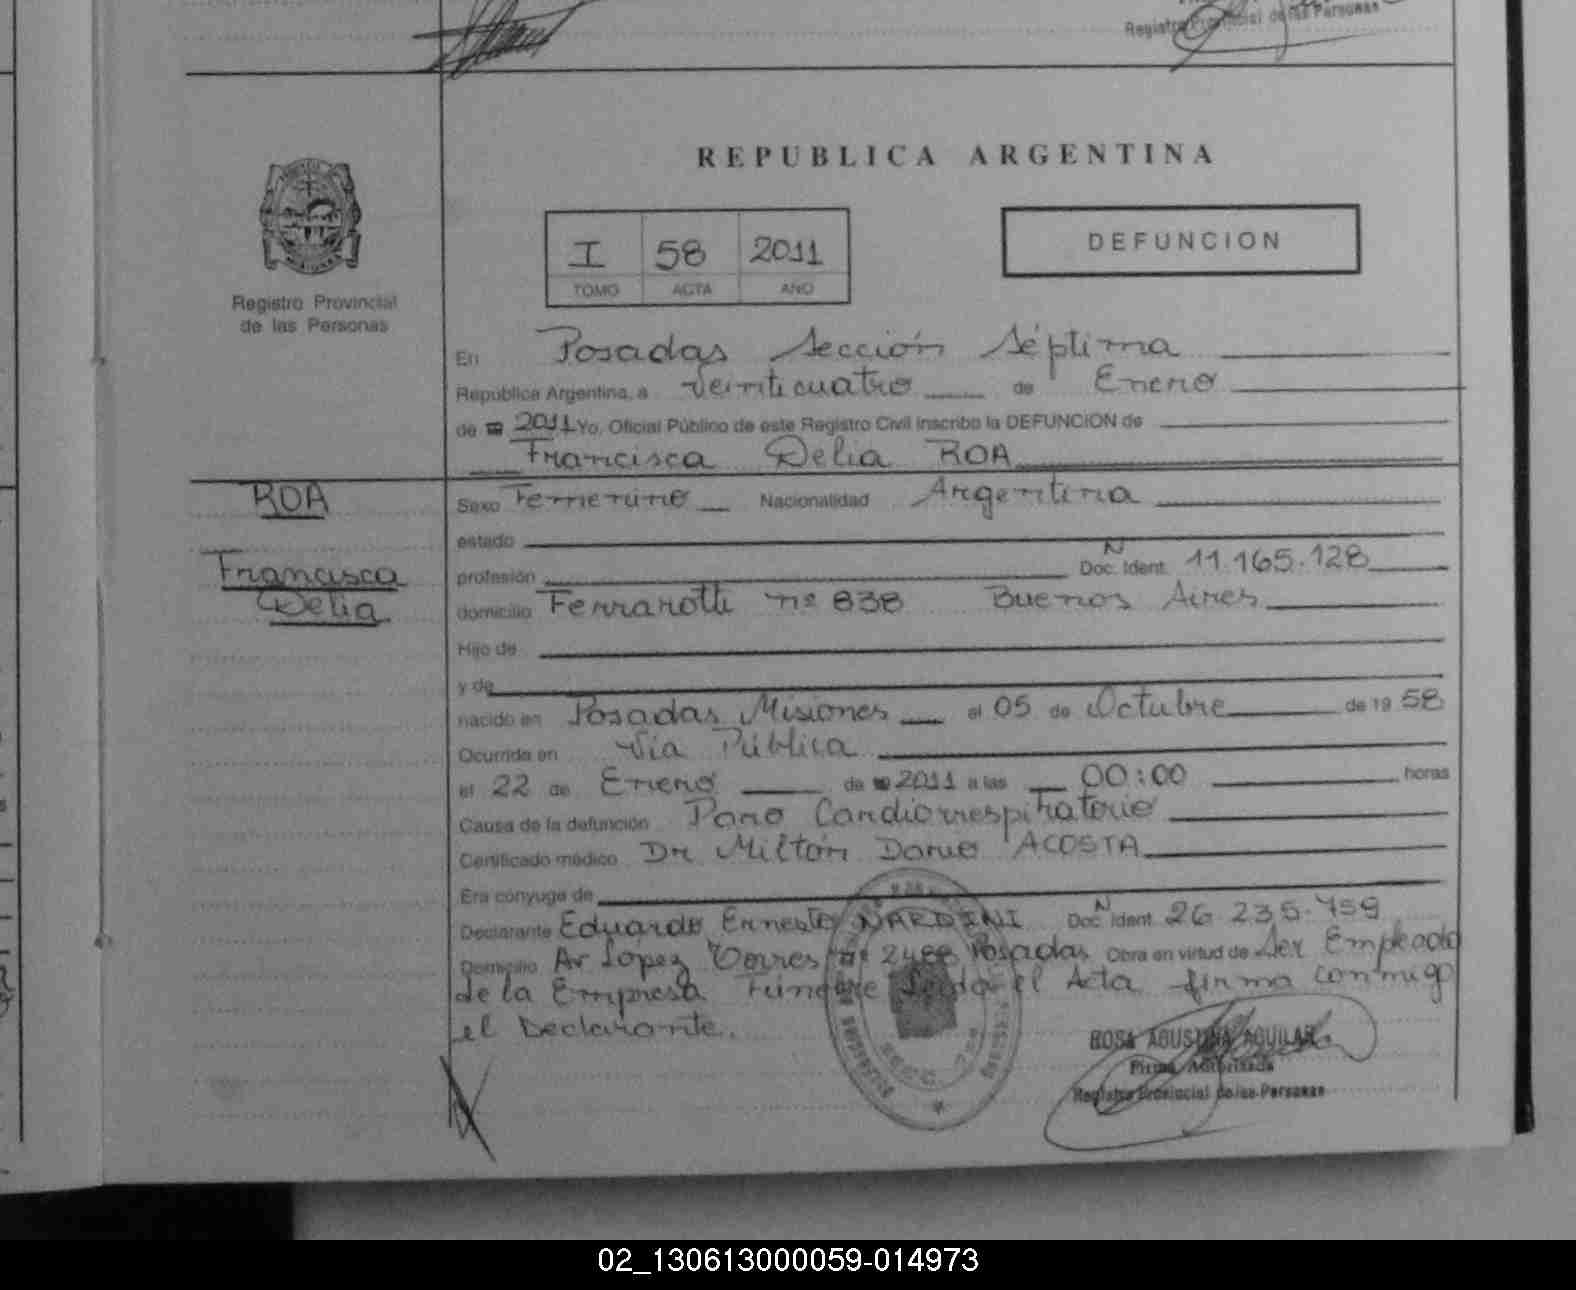 Registro Provincial de las Personas
REPUBLICA ARGENTINA
I 58 2011
TOMO ACTA AÑO
DEFUNCION
Registro Provincial
de las Personas
En Posadas Sección Séptima
República Argentina, a Veinticuatro de Enero
de 2011 Yo, Oficial Público de este Registro Civil inscribo la DEFUNCION de
Francisca Delia ROA
ROA
Francisca
Delia
Sexo Femenino Nacionalidad Argentina
estado
profesión Doc. Ident. N 11.165.128
domicilio Ferrarotti nº 838 Buenos Aires
Hijo de
y de
nacido en Posadas Misiones el 05 de Octubre de 19 58
Ocurrida en Vía Pública
el 22 de Enero de 2011 a las 00:00 horas
Causa de la defunción Paro Cardiorrespiratorio
Certificado médico Dr Milton Dario ACOSTA
Era cónyuge de
Declarante Eduardo Ernesto NARDINI Doc. Ident. N 26.235.759
Domicilio Av Lopez Torres nº 2488 Posadas Obra en virtud de Ser Empleado
de la Empresa Funebre Leida el Acta firma conmigo
el Declarante.
ROSA AGUSTINA AGUILAR
Firma Autorizada
Registro Provincial de las Personas
02_130613000059-014973